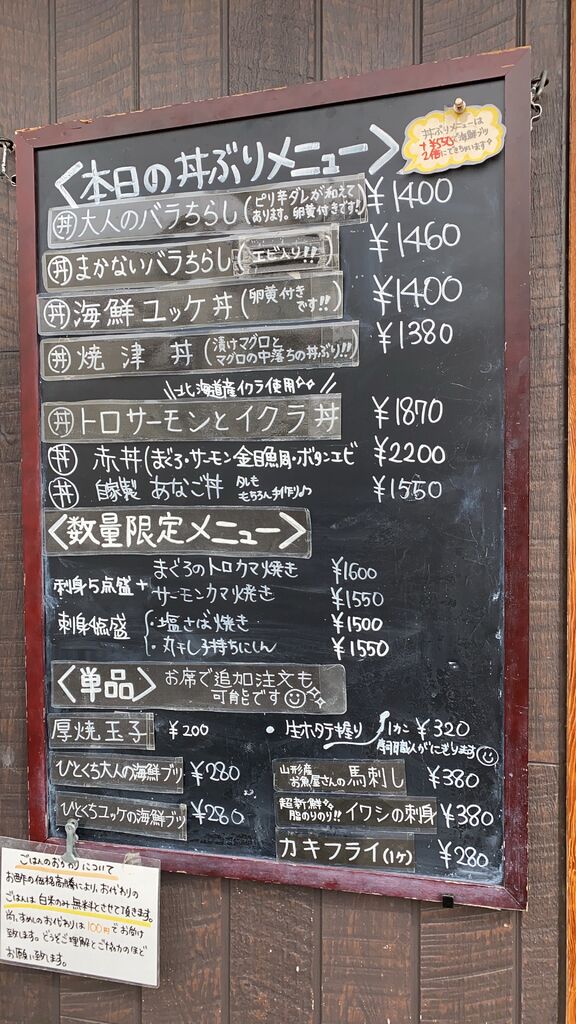 <本日の丼ぶりメニュー>
丼ぶりメニューは
+¥550で海鮮ブツ
2倍にできちゃいます
丼 大人のバラちらし(ピリ辛ダレが和えてあります。卵黄付きです!) ¥1400
丼 まかないバラちらし(エビ入り!!) ¥1460
丼 海鮮ユッケ丼(卵黄付きです!!) ¥1400
丼 焼津丼(漬けマグロとマグロの中落ちの丼ぶり!!) ¥1380
\\北海道産イクラ使用//
丼 トロサーモンとイクラ丼 ¥1870
丼 赤丼(まぐろ・サーモン 金目鯛・ボタンエビ ¥2200
丼 自家製 あなご丼 タレももちろん手作り♪ ¥1550
<数量限定メニュー>
刺身5点盛+ まぐろのトロカマ焼き ¥1600
サーモンカマ焼き ¥1550
刺身4点盛 ・塩さば焼き ¥1500
・丸干し子持ちにしん ¥1550
<単品> お席で追加注文も可能です
厚焼玉子 ¥200
・生ホタテ握り 1カン ¥320
寿司職人がにぎります
ひとくち大人の海鮮ブツ ¥280
山形産お魚屋さんの馬刺し ¥380
ひとくちユッケの海鮮ブツ ¥280
超新鮮脂のりのり!! イワシの刺身 ¥380
カキフライ(1ケ) ¥280
ごはんのおかわりについて
お酢の価格高騰により、おかわりの
ごはんは白米のみ無料とさせて頂きます。
尚、すめしのおかわりは100円でお受け
致します。どうぞご理解とご協力のほど
お願い致します。